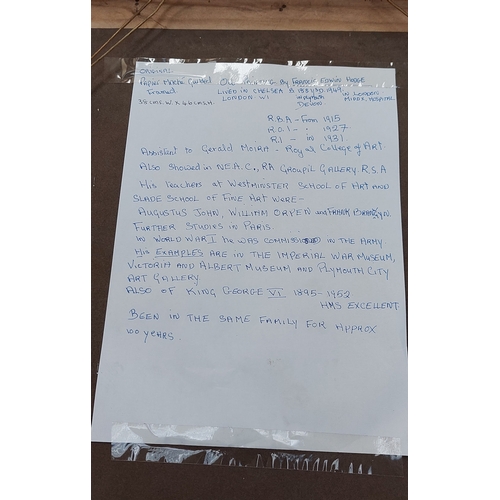 ORIGINAL
Papier Maché Gilded OIL PAINTING By FRANCIS EDWIN HODGE
Framed LIVED IN CHELSEA B 1883 - D 1949
38 cms. W. X 46 cms H. LONDON W1 in Plymouth Devon in London MIDDX. HOSPITAL
R.B.A - From 1915
R.O.I - " 1927
R.I - in 1931
Assistant to Gerald MOIRA - Royal College of ART.
ALSO Showed in N.E.A.C., RA GROUPIL GALLERY. R.S.A
His Teachers at WESTMINSTER SCHOOL OF ART AND
SLADE SCHOOL OF FINE ART WERE -
AUGUSTUS JOHN, WILLIAM ORPEN and FRANK
FURTHER STUDIES IN PARIS.
IN WORLD WAR I he WAS COMMISSIONED IN THE ARMY
His EXAMPLES ARE IN THE IMPERIAL WAR MUSEUM,
VICTORIA AND ALBERT MUSEUM AND PLYMOUTH CITY
ART GALLERY
ALSO OF KING GEORGE VI 1895-1952
HMS EXCELLENT.
BEEN IN THE SAME FAMILY FOR APPROX
100 YEARS.